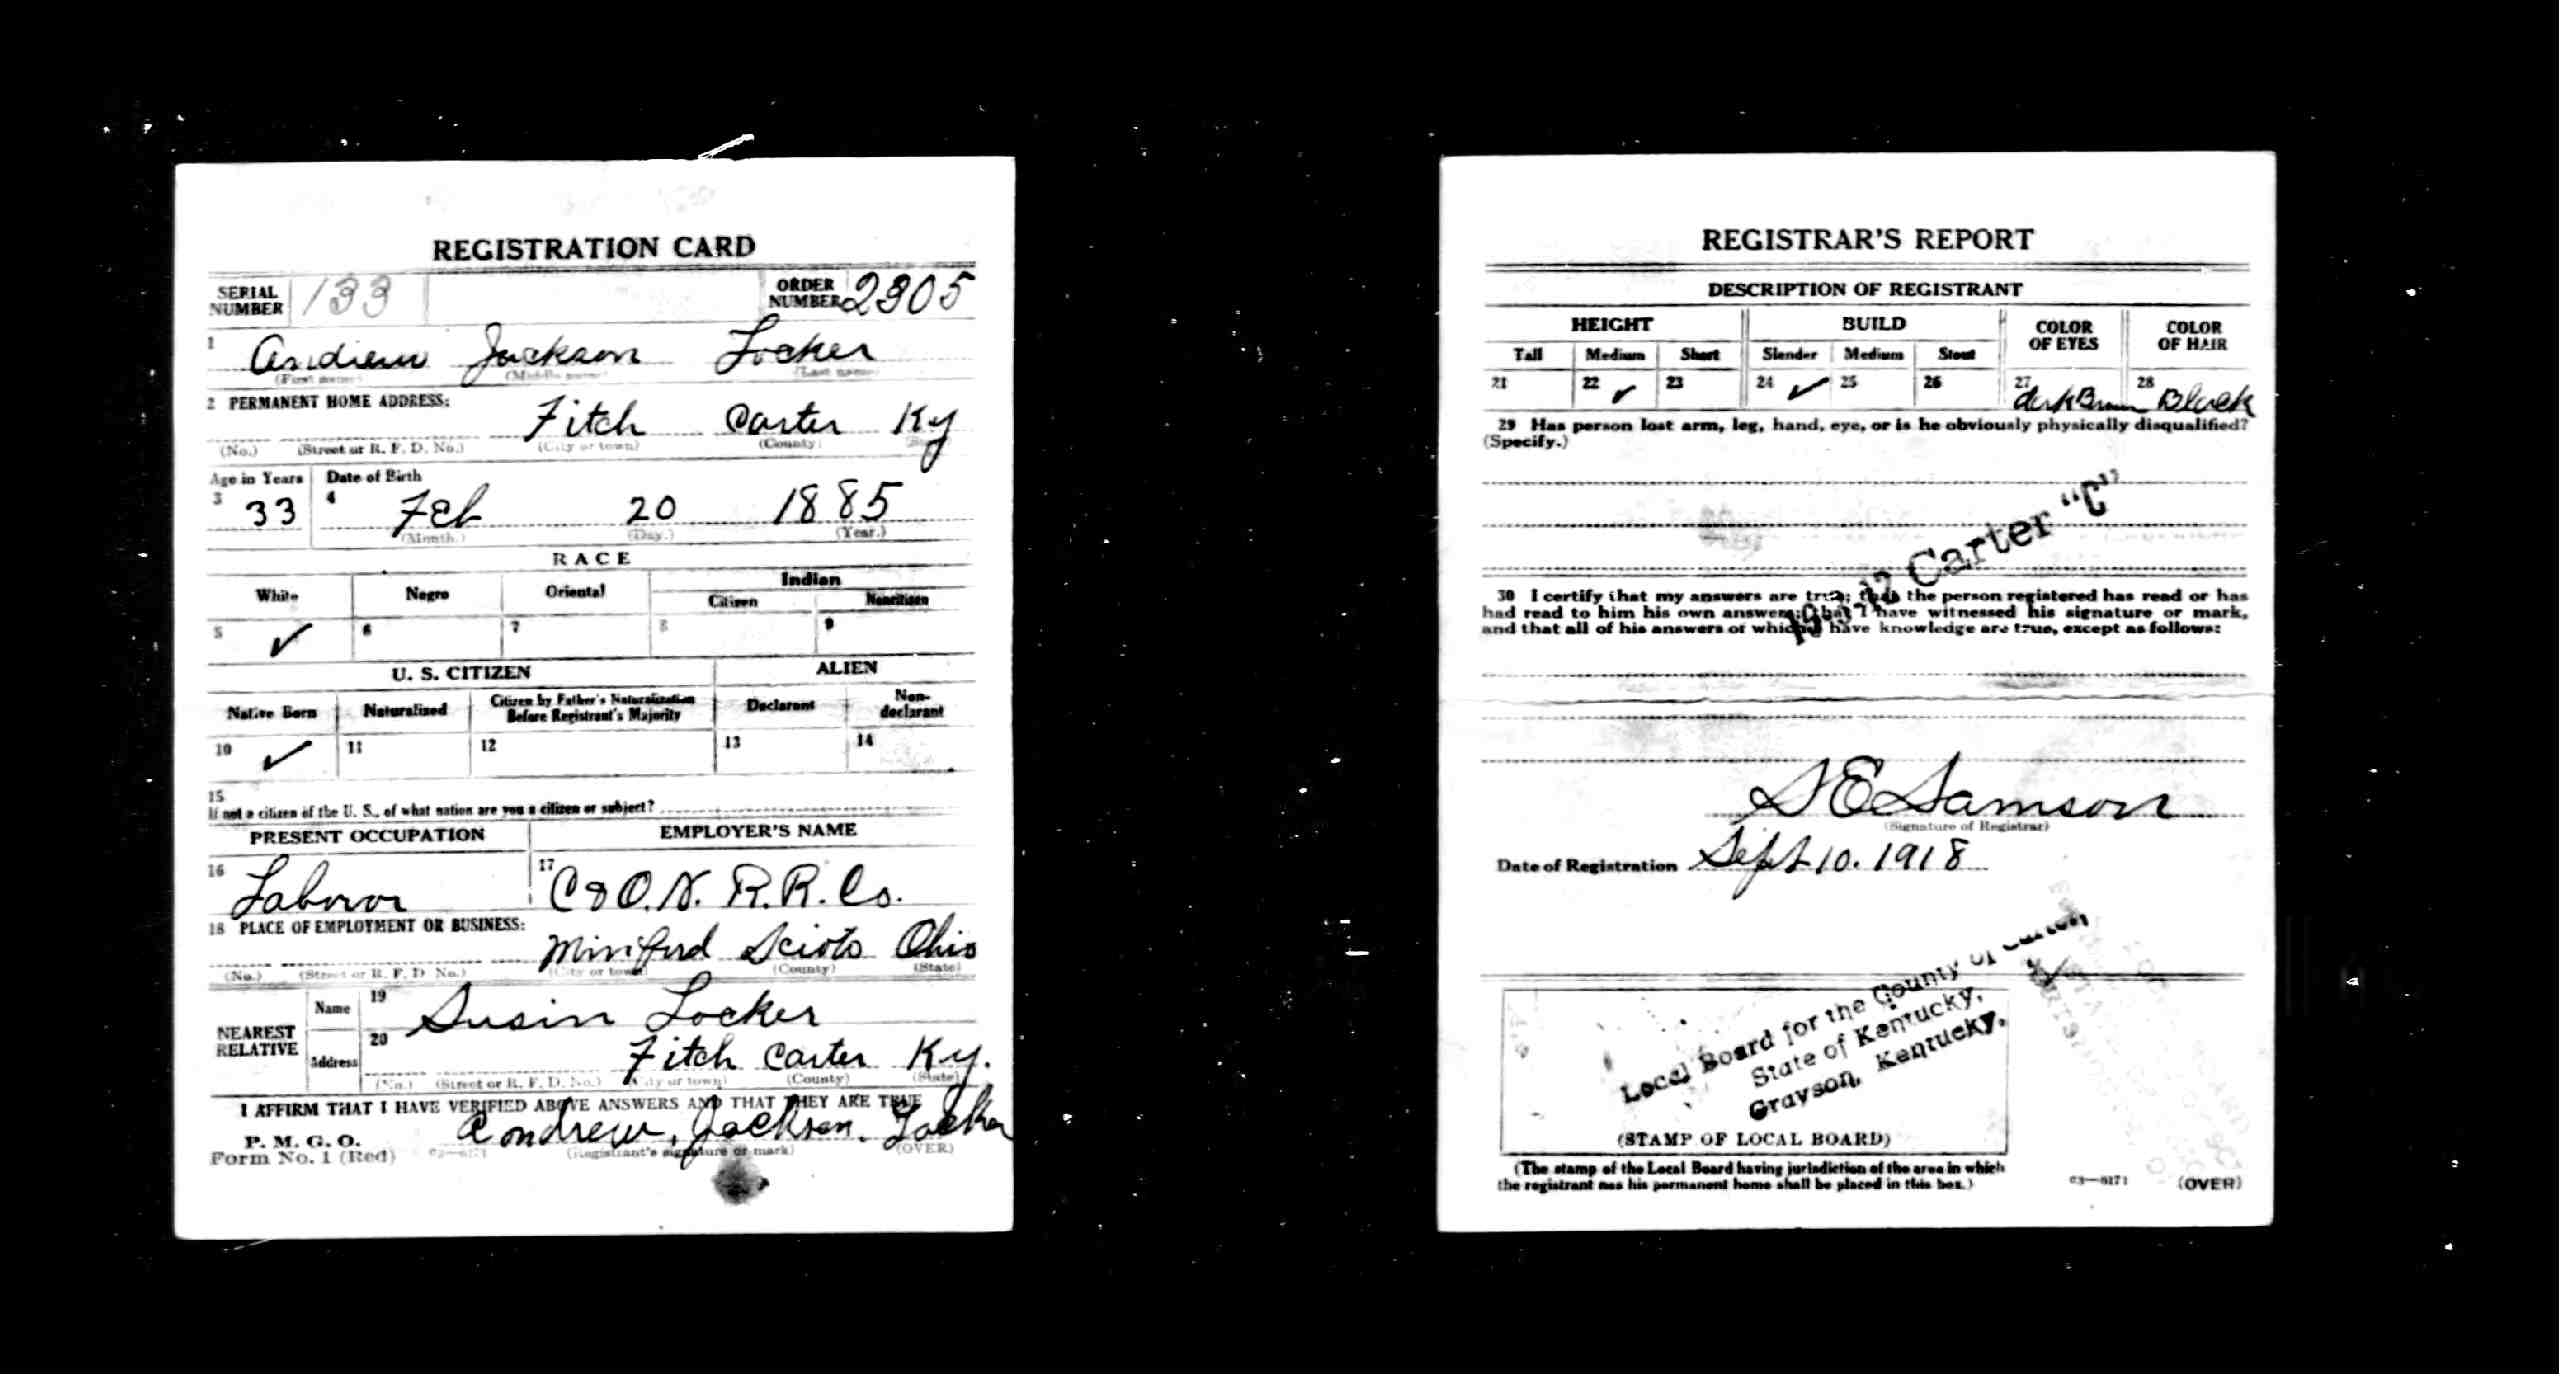 REGISTRATION CARD
SERIAL NUMBER 133 ORDER NUMBER 2305
1 Andrew Jackson Locker
(First name) (Middle name) (Last name)
2 PERMANENT HOME ADDRESS:
Fitch Carter Ky
(No.) (Street or R. F. D. No.) (City or town) (County) (State)
Age in Years Date of Birth
3 33 4 Feb 20 1885
(Month.) (Day.) (Year.)
RACE
White Negro Oriental Indian
Citizen Noncitizen
5 ✓ 6 7 8 9
U. S. CITIZEN ALIEN
Native Born Naturalized Citizen by Father's Naturalization Before Registrant's Majority Declarant Non-declarant
10 ✓ 11 12 13 14
15
If not a citizen of the U. S., of what nation are you a citizen or subject?
PRESENT OCCUPATION EMPLOYER'S NAME
16 Laboror 17 C & O. N. R. R. Co.
18 PLACE OF EMPLOYMENT OR BUSINESS:
Minford Scioto Ohio
(No.) (Street or R. F. D. No.) (City or town) (County) (State)
NEAREST RELATIVE
Name 19 Susin Locker
Address 20 Fitch Carter Ky.
(No.) (Street or R. F. D. No.) (City or town) (County) (State)
I AFFIRM THAT I HAVE VERIFIED ABOVE ANSWERS AND THAT THEY ARE TRUE
P. M. G. O.
Form No. 1 (Red) 03—6171 Andrew Jackson Locker
(Registrant's signature or mark) (OVER)
REGISTRAR'S REPORT
DESCRIPTION OF REGISTRANT
HEIGHT BUILD COLOR OF EYES COLOR OF HAIR
Tall Medium Short Slender Medium Stout
21 22 ✓ 23 24 ✓ 25 26 27 dark Brown 28 Black
29 Has person lost arm, leg, hand, eye, or is he obviously physically disqualified?
(Specify.)
Carter "C"
30 I certify that my answers are true; that the person registered has read or has
had read to him his own answers; that I have witnessed his signature or mark,
and that all of his answers of which I have knowledge are true, except as follows:
S E Samson
(Signature of Registrar)
Date of Registration Sept 10. 1918
Local Board for the County of Carter
State of Kentucky,
Grayson, Kentucky.
(STAMP OF LOCAL BOARD)
(The stamp of the Local Board having jurisdiction of the area in which
the registrant has his permanent home shall be placed in this box.)
03—6171 (OVER)